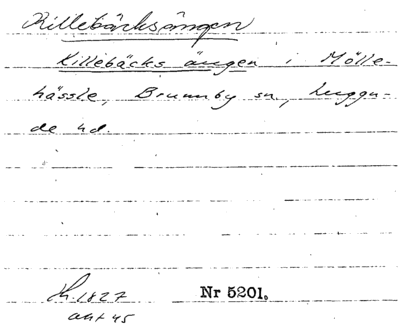 Killebäcksängen
Killebäcks ängen i Mölle-
hässle, Brunnby sn, Luggu-
de hd.
Nr 5201.
1827
akt 45